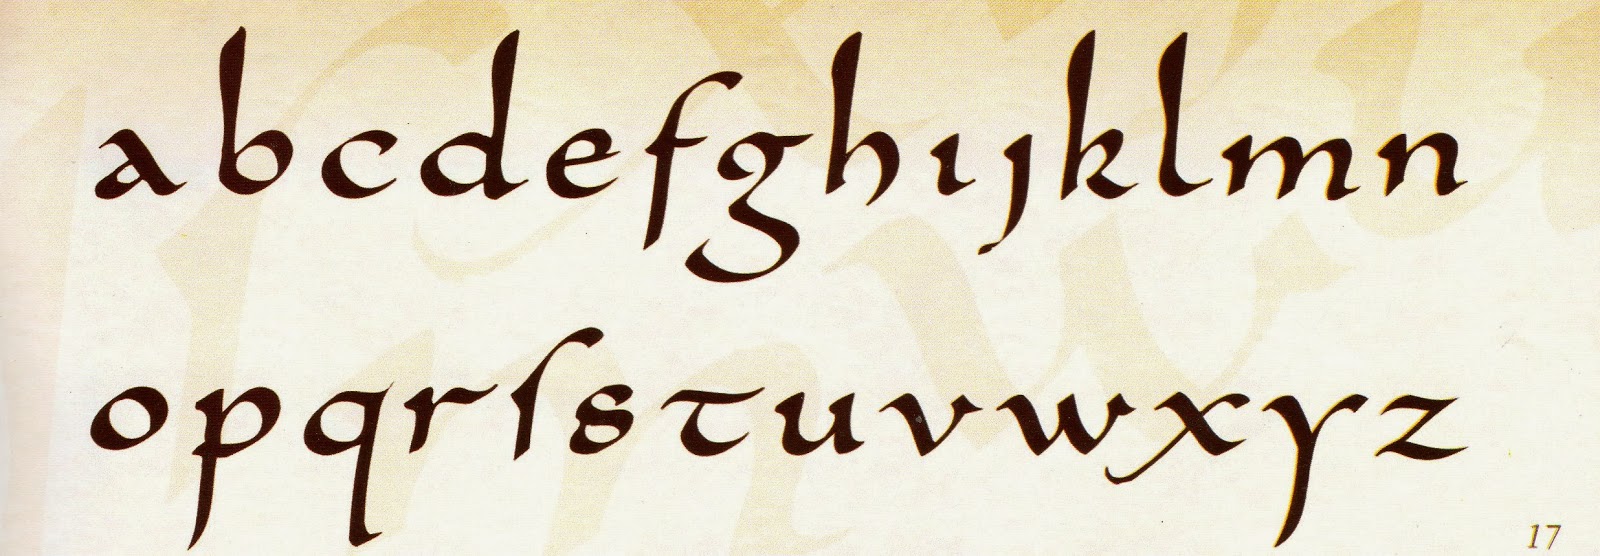 abcdefghıȷklmn
opqrſstuvwxyz
17